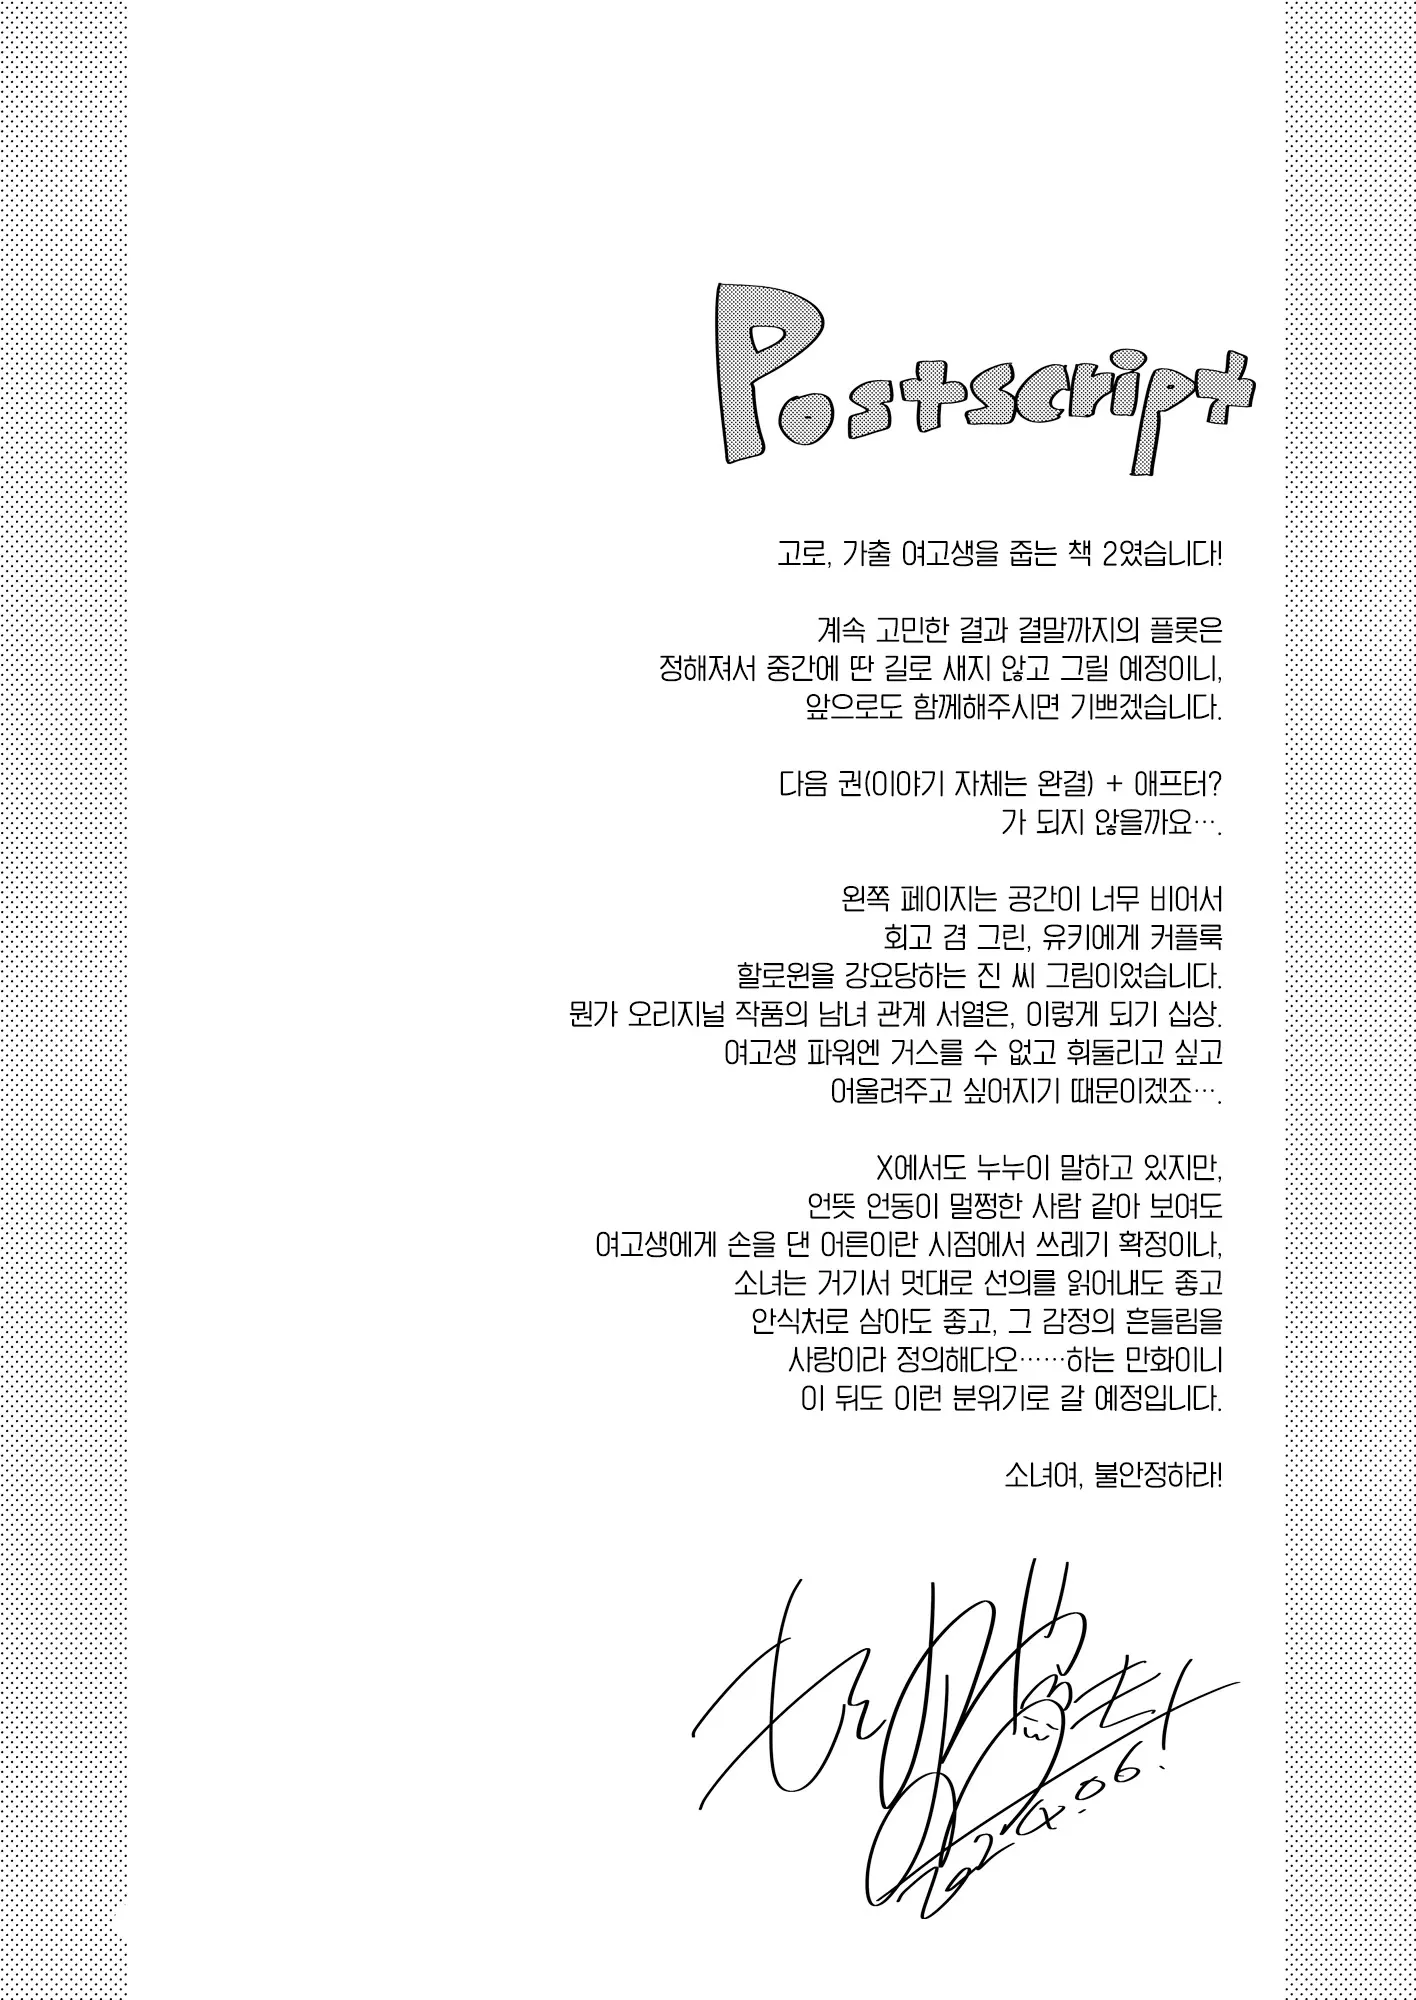 Postscript
고로, 가출 여고생을 줍는 책 2였습니다!
계속 고민한 결과 결말까지의 플롯은
정해져서 중간에 딴 길로 새지 않고 그릴 예정이니,
앞으로도 함께해주시면 기쁘겠습니다.
다음 권(이야기 자체는 완결) + 애프터?
가 되지 않을까요….
왼쪽 페이지는 공간이 너무 비어서
회고 겸 그린, 유키에게 커플룩
할로윈을 강요당하는 진 씨 그림이었습니다.
뭔가 오리지널 작품의 남녀 관계 서열은, 이렇게 되기 십상.
여고생 파워엔 거스를 수 없고 휘둘리고 싶고
어울려주고 싶어지기 때문이겠죠….
X에서도 누누이 말하고 있지만,
언뜻 언동이 멀쩡한 사람 같아 보여도
여고생에게 손을 댄 어른이란 시점에서 쓰레기 확정이나,
소녀는 거기서 멋대로 선의를 읽어내도 좋고
안식처로 삼아도 좋고, 그 감정의 흔들림을
사랑이라 정의해다오……하는 만화이니
이 뒤도 이런 분위기로 갈 예정입니다.
소녀여, 불안정하라!
2024.06.